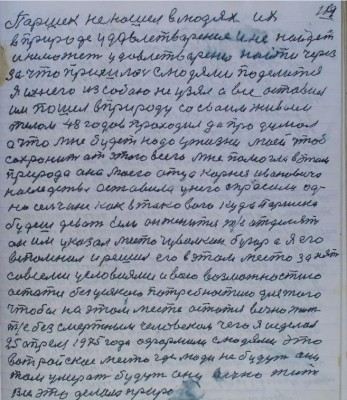 119
Паршек не нашел в людях их
в природе удовлетворение и не найдет
и не может удовлетворено найти через
за что пришлось с людями поделится
Я ихнего из собою не узял а все оставил
им пошел в природу со своим живым
телом 48 годов проходил да про думал
а что мне будет надо у жизни моей чтоб
сохранит от этого всего мне помогли в этом
природа она моего отца Корнея ивановича
наследства оставила у него спрасили од-
но селчане как в тако вого куда Паршека
будеш деват ели он женится т/е отделят
он им указал место чувилкин бугор а Я его
вспомнил и решил его в этом месте занят
совсеми условиями и свого возможностию
остатся без всякого потребностию для того
чтобы на этом месте остатся вечно жит
т/е без смертним человеком чего Я и сделал
25 апреля 1975 года оформили с людями это
вот райское место где люди не будут они
там умират будут они вечно жит
Все это делает приро